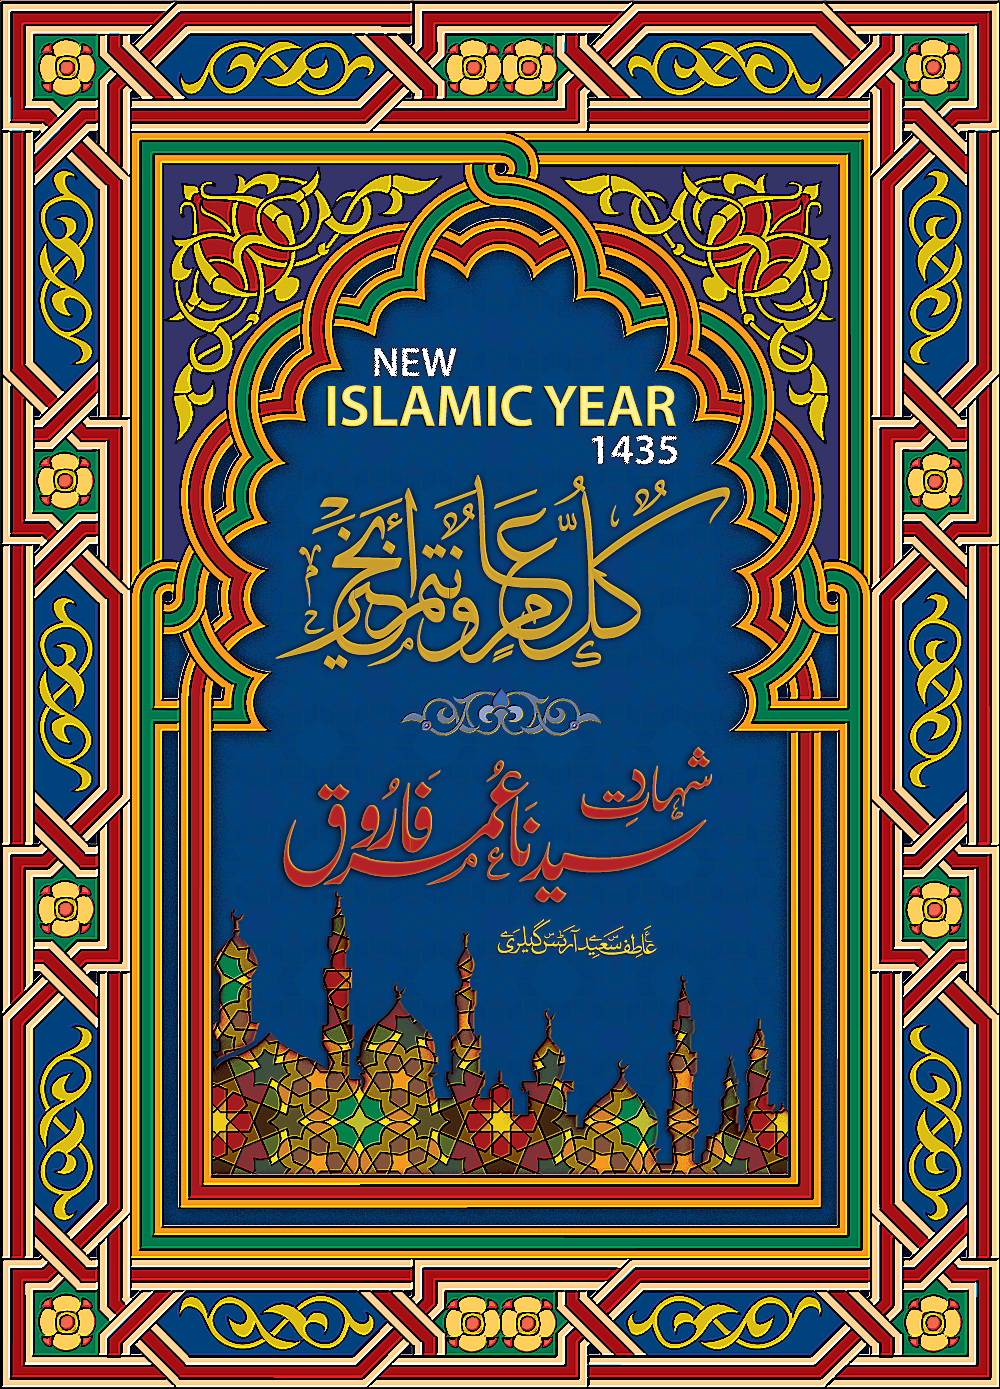 NEW
ISLAMIC YEAR
1435
كُلُّ عَامٍ وَنتم بخير
شہادتِ
سیدنا عمر فاروق
عاطف سعیدی آرٹس گیلری